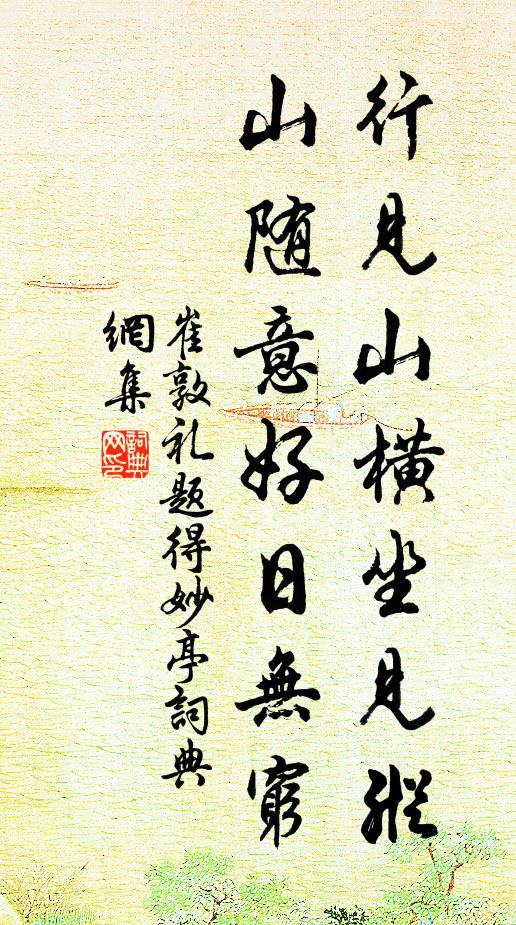 行見山橫坐見縱
山随意好日無窮
崔敦礼題得妙亭詞典
網集
詞典
网印